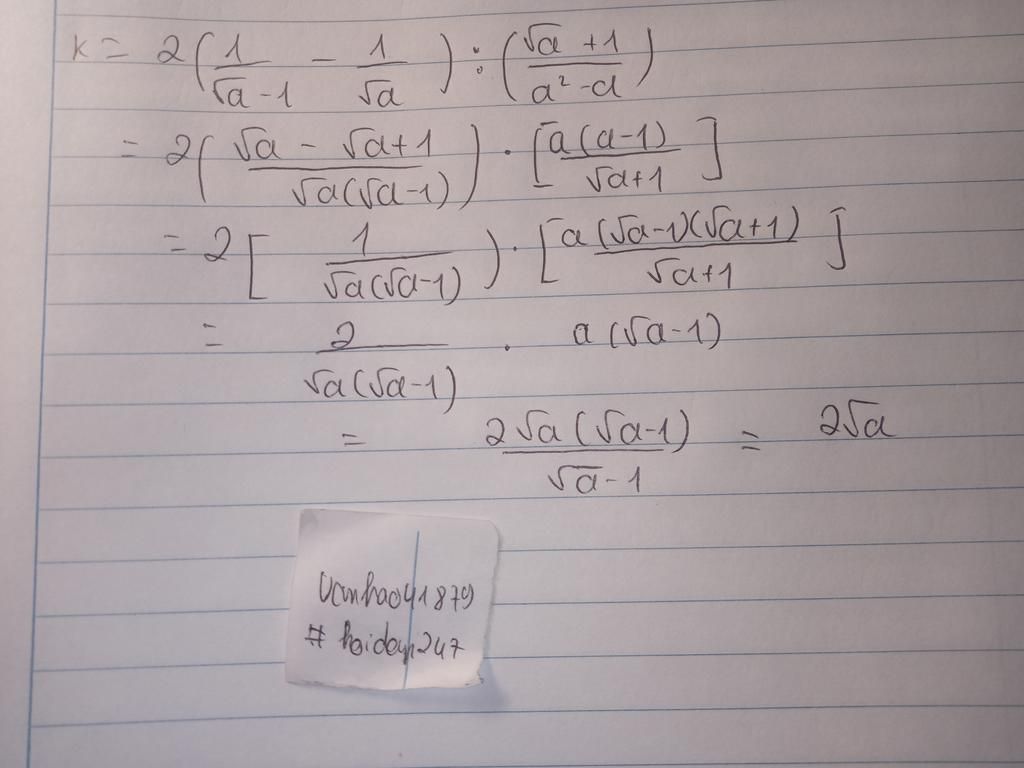 K = 2(1/(√a-1) - 1/√a) : ((√a+1)/(a²-a))
= 2((√a - √a+1)/(√a(√a-1))) . [a(a-1)/(√a+1)]
= 2[1/(√a(√a-1))) . [a(√a-1)(√a+1)/(√a+1)]
= 2/(√a(√a-1)) . a(√a-1)
= 2√a(√a-1)/(√a-1) = 2√a
# hoidap247